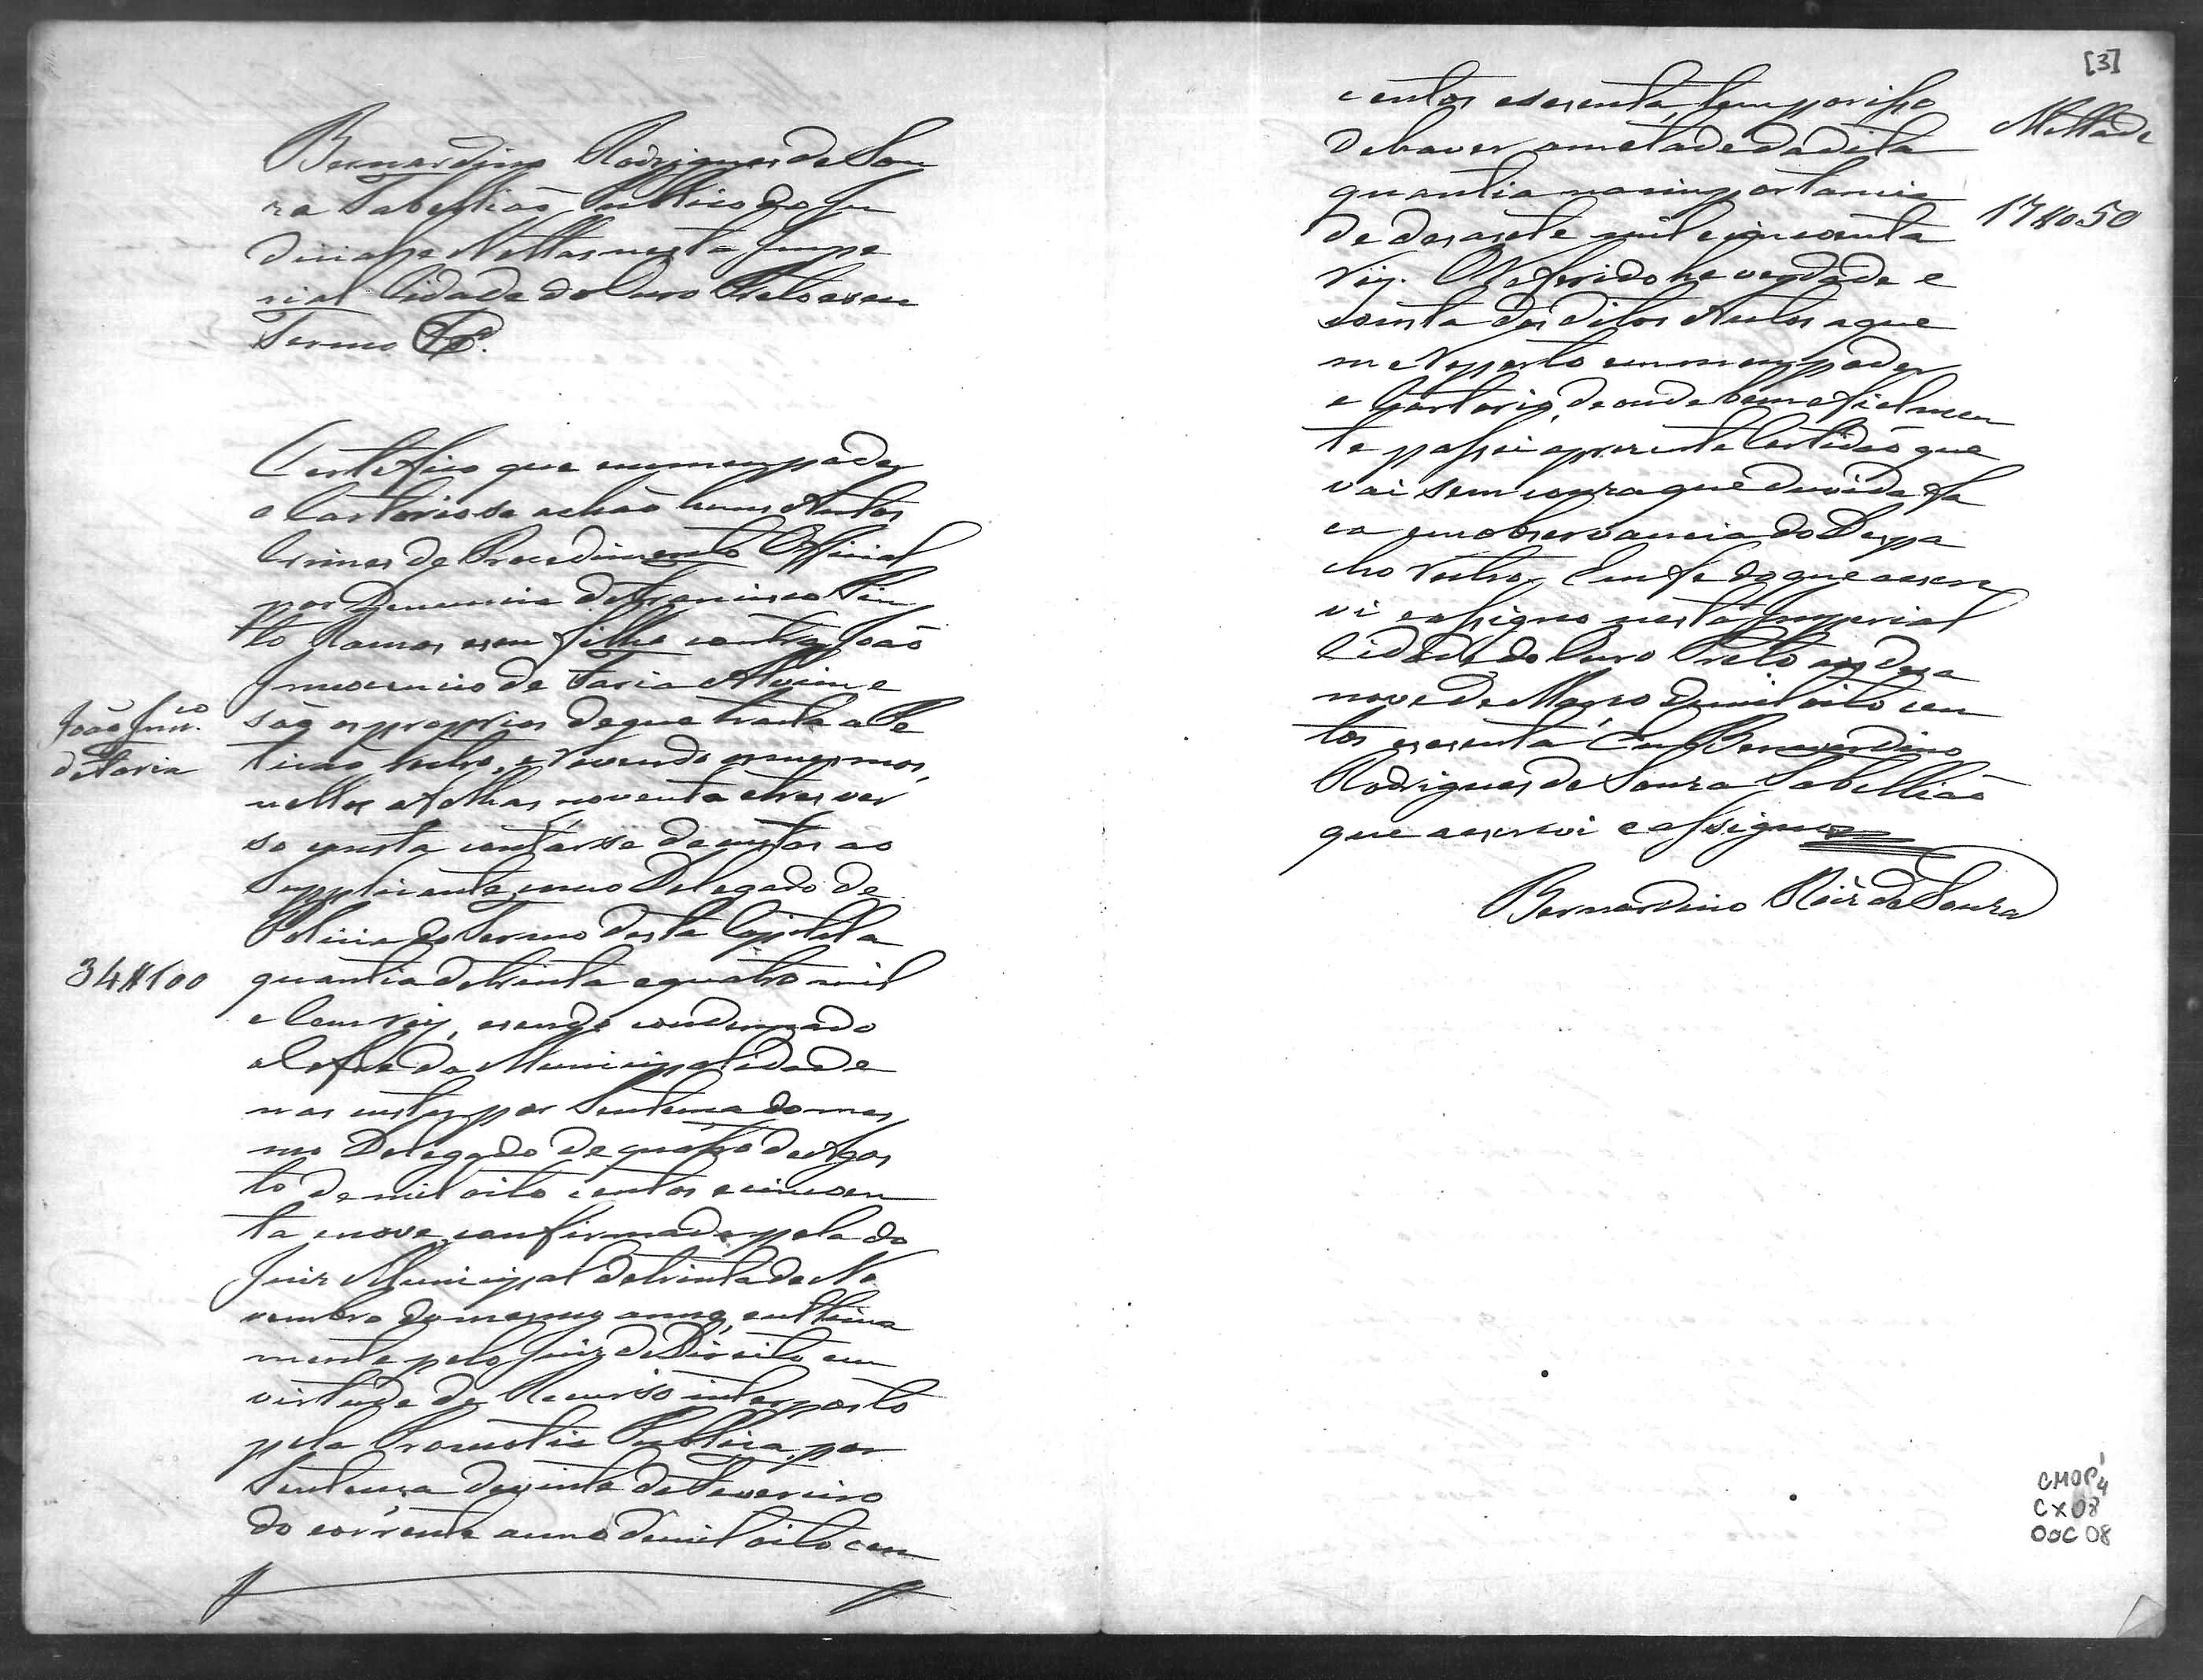 Bernardino Rodrigues de Sou
za Tabellião Publico do Ju
dicial e Nottas nesta Impe
rial Cidade do Ouro Preto e seu
Termo &ª.
Certefico que em meu poder
e Cartorio se achão huns Autos
Crimes de Procedimento Official
por Denuncia de Francisco Pin
to Ramos e seu filho contra João
Innocencio de Faria Alvim e
João Inn.co
de Faria
são os proprios de que tracta a Pe
tição retro, e revendo os mesmos,
nelles a folhas noventa e tres ver
so consta contar-se de custas ao
Supplicante como Delegado de
Policia do Termo desta Capital a
34$100
quantia de trinta e quatro mil
e Cem reis, e sendo condemnado
o Cofre da Municipalidade
nas custas por Sentença do mes
mo Delegado de quatro de Agos
to de mil oito centos e cincoen
ta e nove, confirmada pela do
Juiz Municipal de trinta de No
vembro do mesmo anno, e ultima
mente pelo Juiz de Direito em
virtude do Recurso interposto
pela Promotia Publica, por
Sentença de vinte de Fevereiro
do corrente anno de mil oito cen
[3]
centos e sesenta, tem por isso
Mettade
de haver a metade da dita
quantia na importancia
17$050
de desasete mil e cincoenta
reis. O referido he verdade e
consta dos ditos Autos a que
me reporto em meu poder
e Cartorio, de onde bem e fielmen
te passei a presente Certidão que
vai sem couza que duvida fa
ca em observancia do Despa
cho retro. Em fe do que a escre
vi e assigno nesta Imperial
Cidade do Ouro Preto aos desa
nove de Março de mil oito cen
tos e sesenta. Eu Bernardino
Rodrigues de Souza Tabellião
que a escrevi e assigno
Bernardino Roiz de Souza
CMOP 4
CX 08
DOC 08